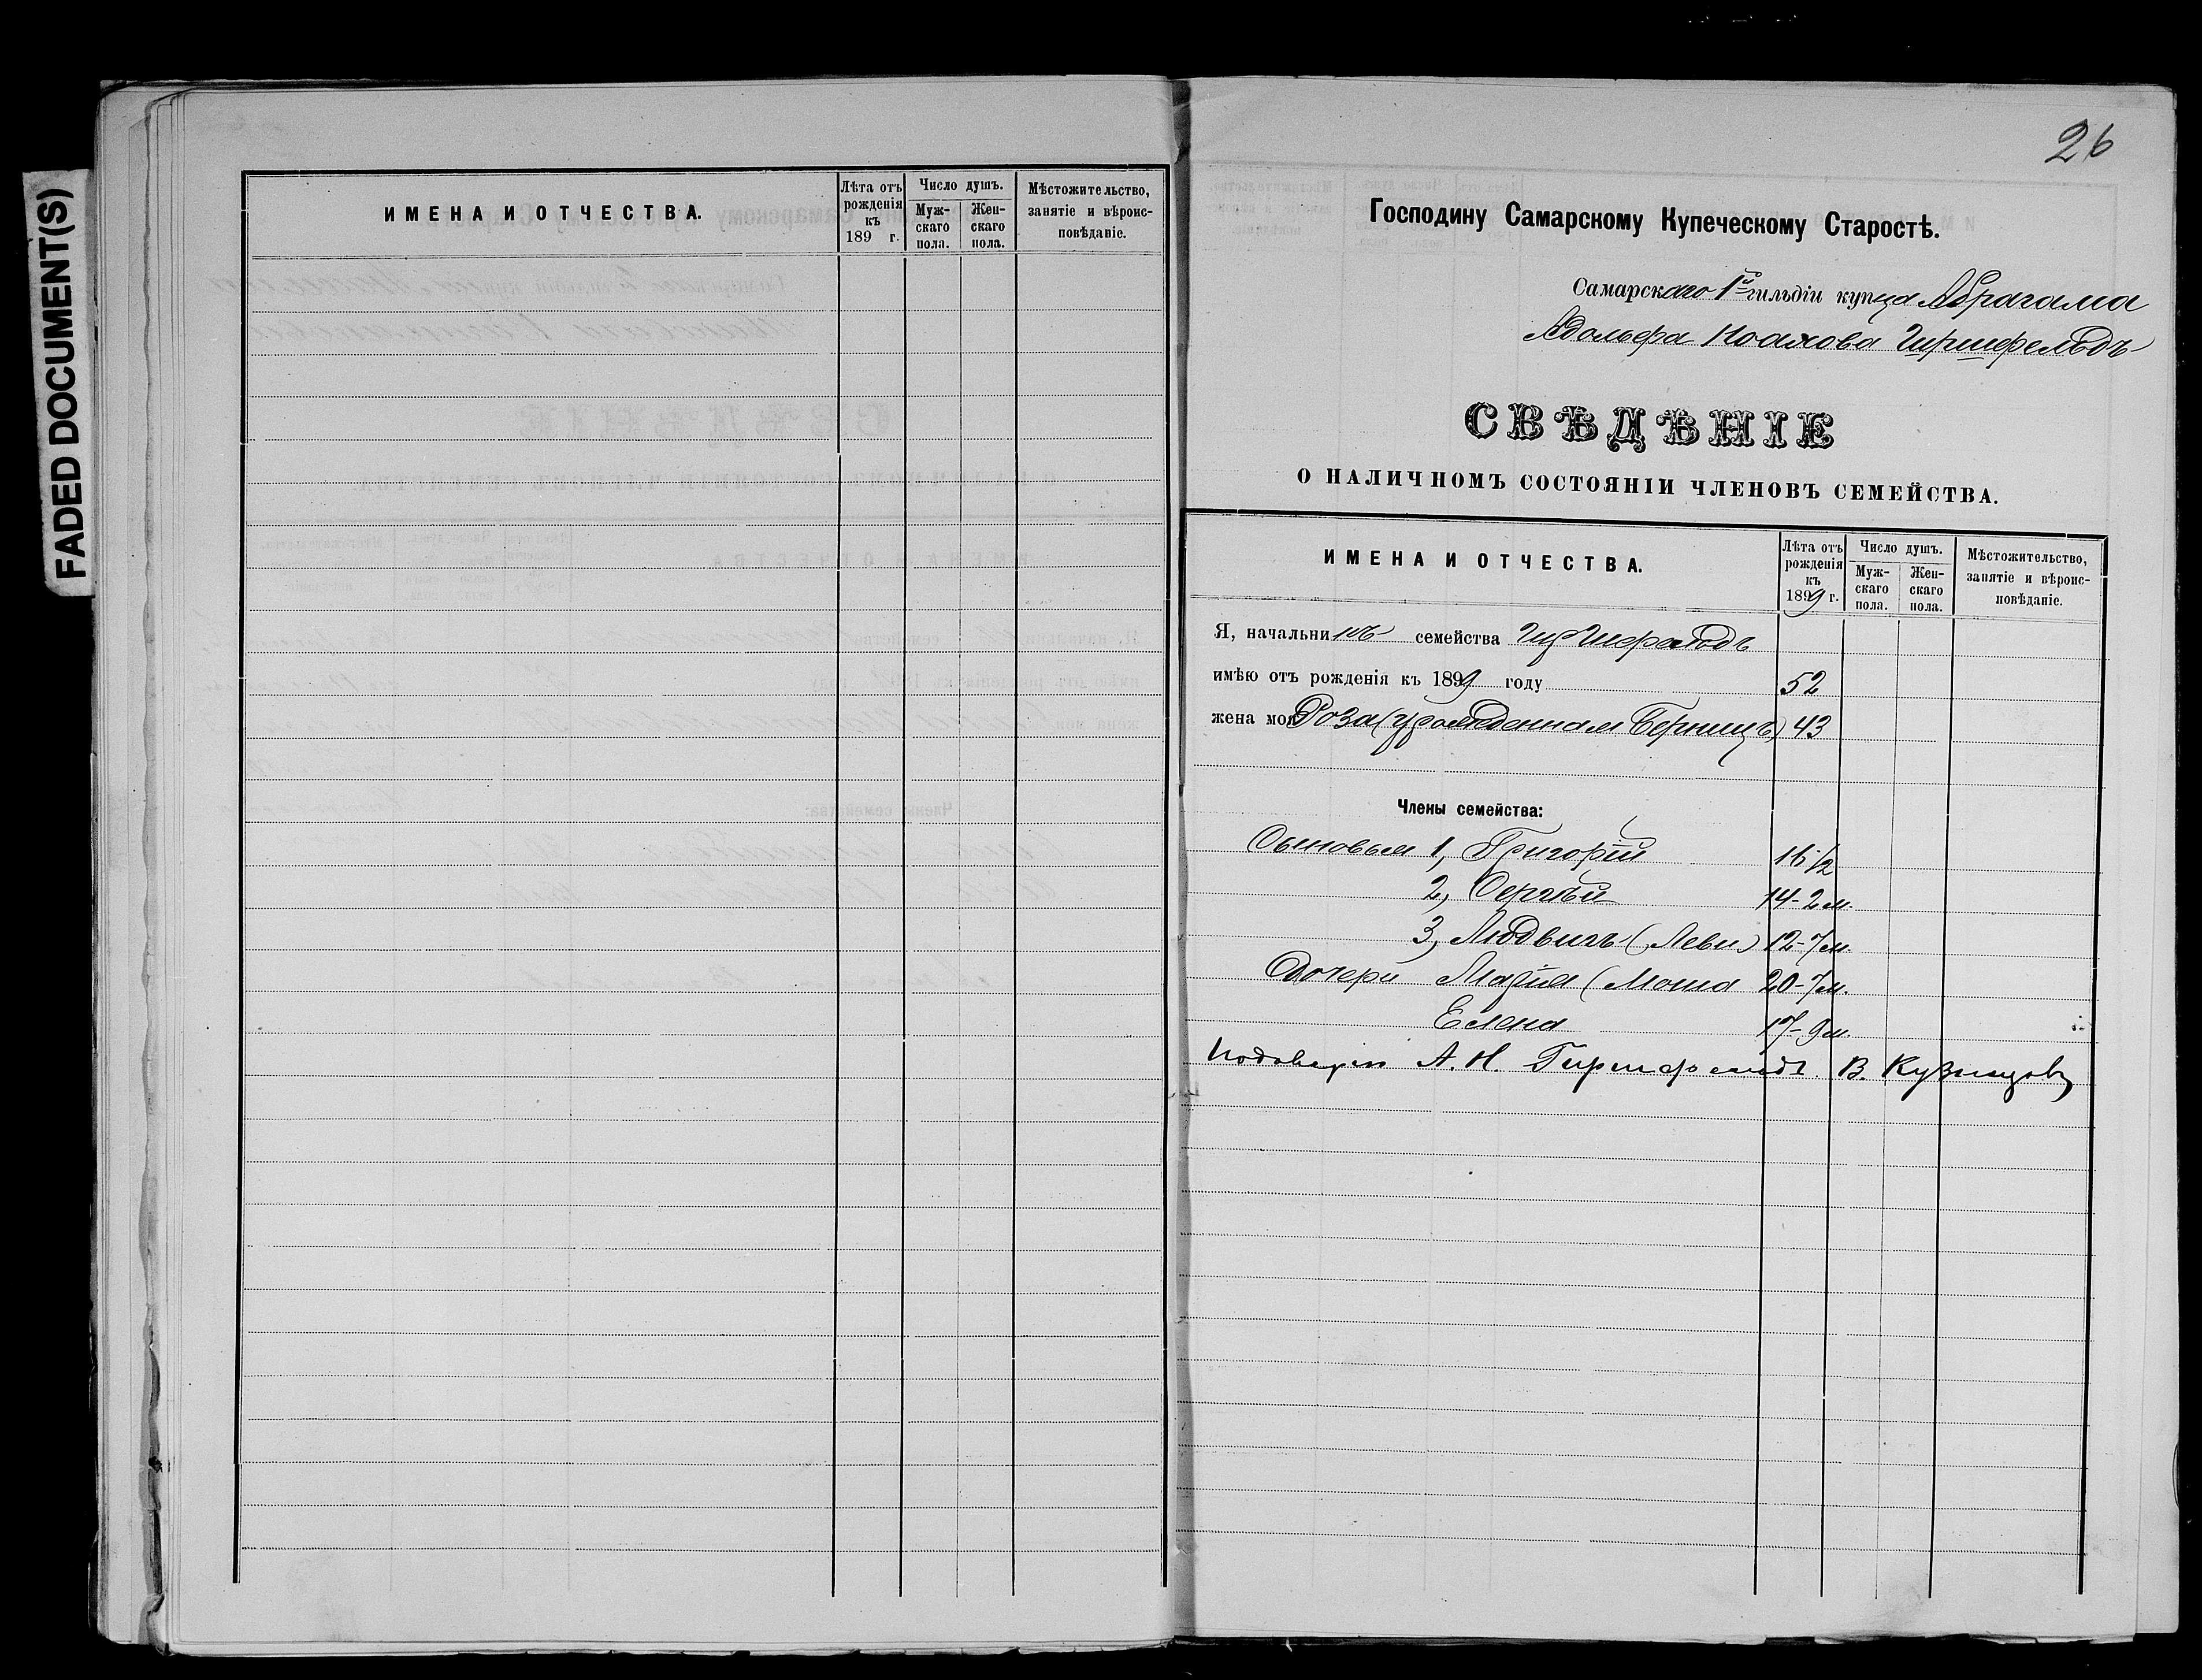 FADED DOCUMENT(S)
ИМЕНА И ОТЧЕСТВА.
Лѣта отъ рожденія къ 189 г.
Число душъ.
Мужскаго пола.
Женскаго пола.
Мѣстожительство, занятіе и вѣроисповѣданіе.
26
Господину Самарскому Купеческому Старостѣ.
Самарскаго 1ой гильдіи купца Абрагама
Адольфа Ноахова Гиршфельдъ
СВѢДѢНІЕ
О НАЛИЧНОМЪ СОСТОЯНІИ ЧЛЕНОВЪ СЕМЕЙСТВА.
ИМЕНА И ОТЧЕСТВА.
Лѣта отъ рожденія къ 1899 г.
Число душъ.
Мужскаго пола.
Женскаго пола.
Мѣстожительство, занятіе и вѣроисповѣданіе.
Я, начальникъ семейства Гиршфельдъ
имѣю отъ рожденія къ 1899 году 52
жена моя Роза (урожденная Берницъ) 43
Члены семейства:
Сыновья 1, Григорій 16 1/2
2, Сергѣй 14-2 м.
3, Людвигъ (Леви) 12-7 м.
Дочери Марія (Моша 20-7 м.
Елена 17-9 м.
А. Н. Гиршфельдъ В. Кузнецовъ